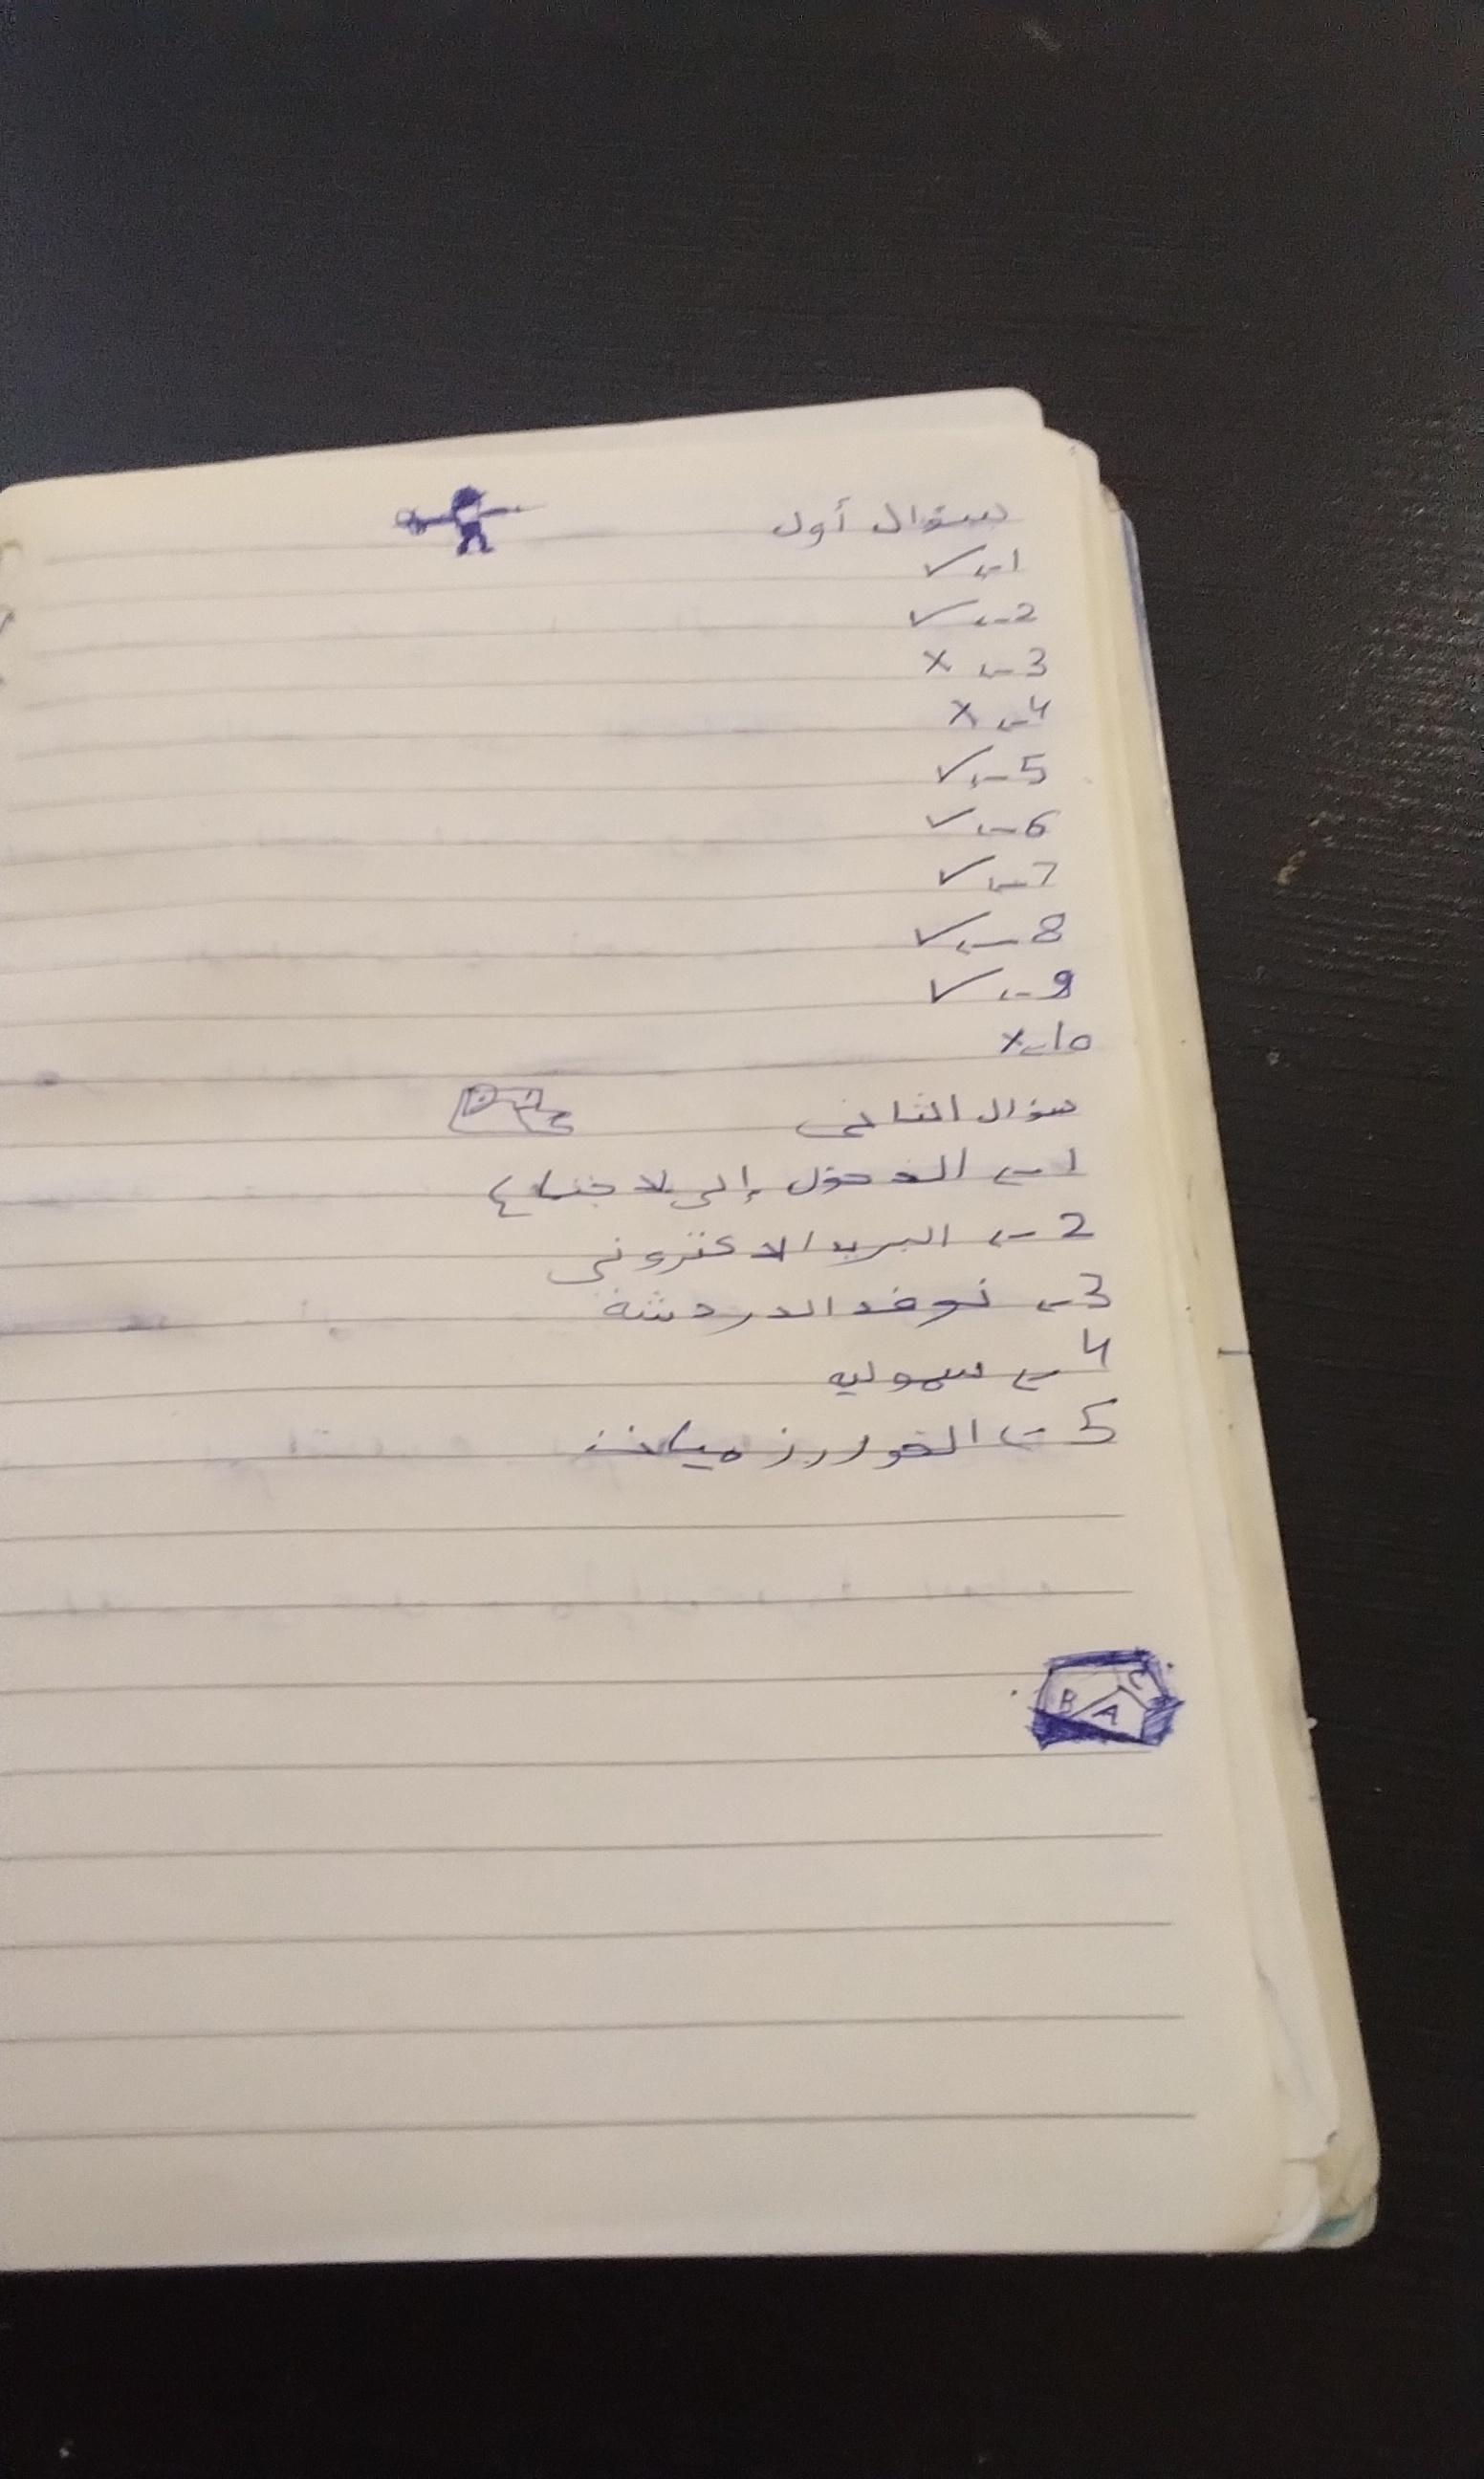 سؤال أول
1 ← ✓
2 ← ✓
3 ← ×
4 ← ×
5 ← ✓
6 ← ✓
7 ← ✓
8 ← ✓
9 ← ✓
10 ← ×
سؤال الثاني
1 ← الدخول إلى لاجتماع
2 ← البريد الاكتروني
3 ← نوفد الدردشة
4 ←
5 ← الخوارزميات
B A C